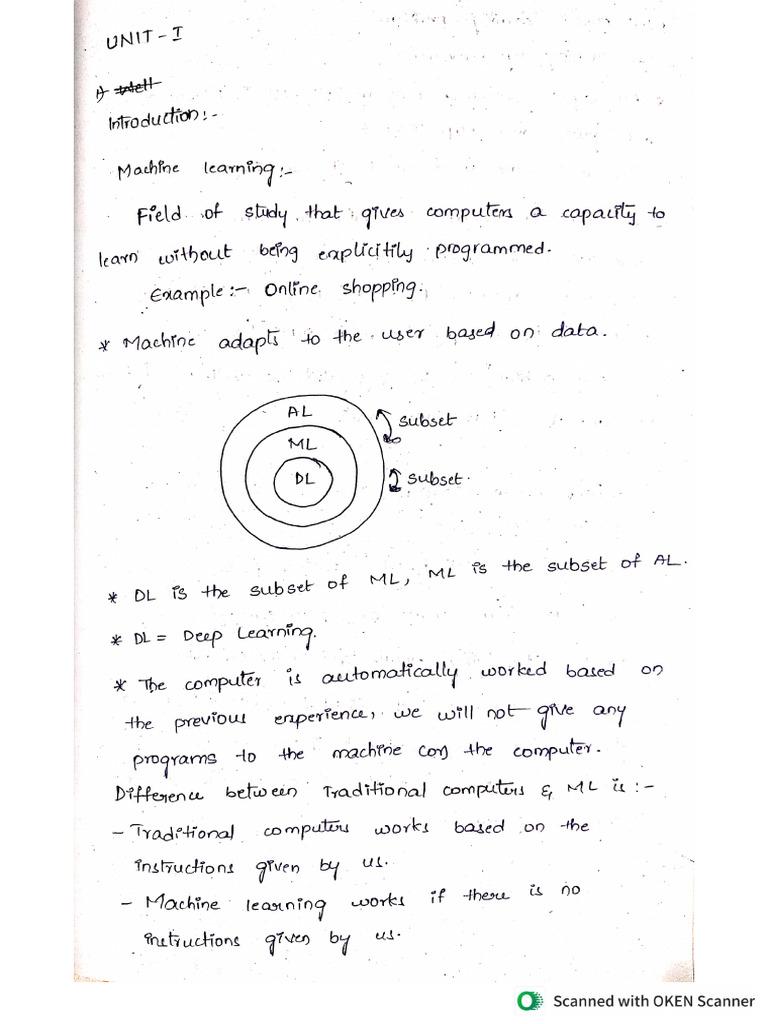 UNIT-I
1)
Introduction:-
Machine learning:-
Field of study that gives computers a capacity to
learn without being explicitily programmed.
Example:- Online shopping.
* Machine adapts to the user based on data.
AL
subset
ML
DL
subset.
* DL is the subset of ML, ML is the subset of AL.
* DL = Deep Learning.
* The computer is automatically worked based on
the previous experience, we will not give any
programs to the machine (or) the computer.
Difference between Traditional computers & ML is:-
- Traditional computers works based on the
instructions given by us.
- Machine learning works if there is no
instructions given by us.
Scanned with OKEN Scanner